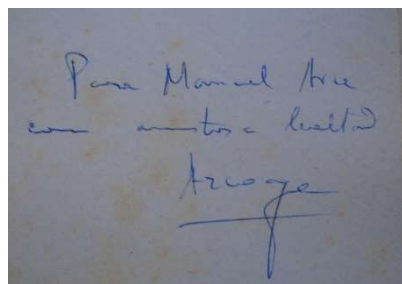 Para Manuel Arce
con amistosa lealtad
Azcoaga